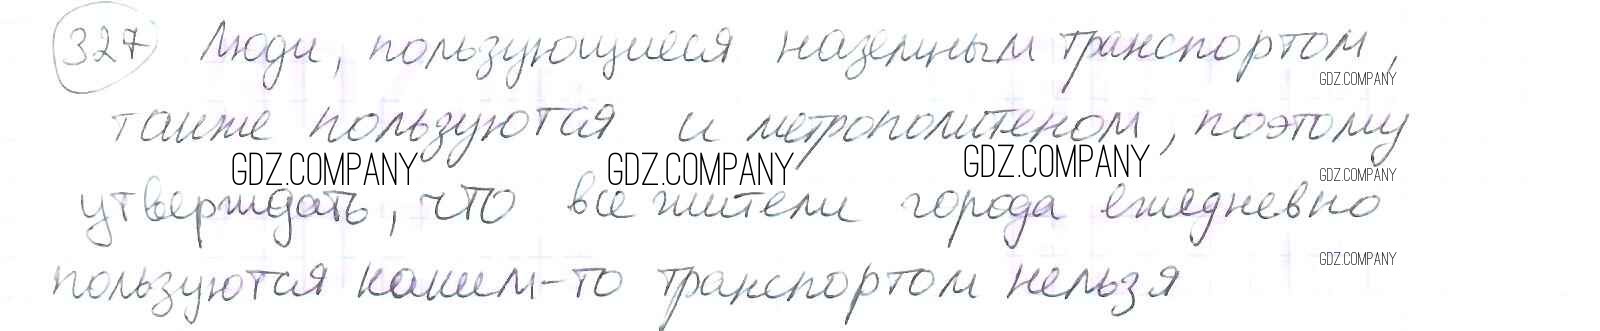 327 Люди, пользующиеся наземным транспортом,
GDZ.COMPANY
также пользуются и метрополитеном, поэтому
GDZ.COMPANY GDZ.COMPANY GDZ.COMPANY GDZ.COMPANY
утверждать, что все жители города ежедневно
GDZ.COMPANY
пользуются каким-то транспортом нельзя